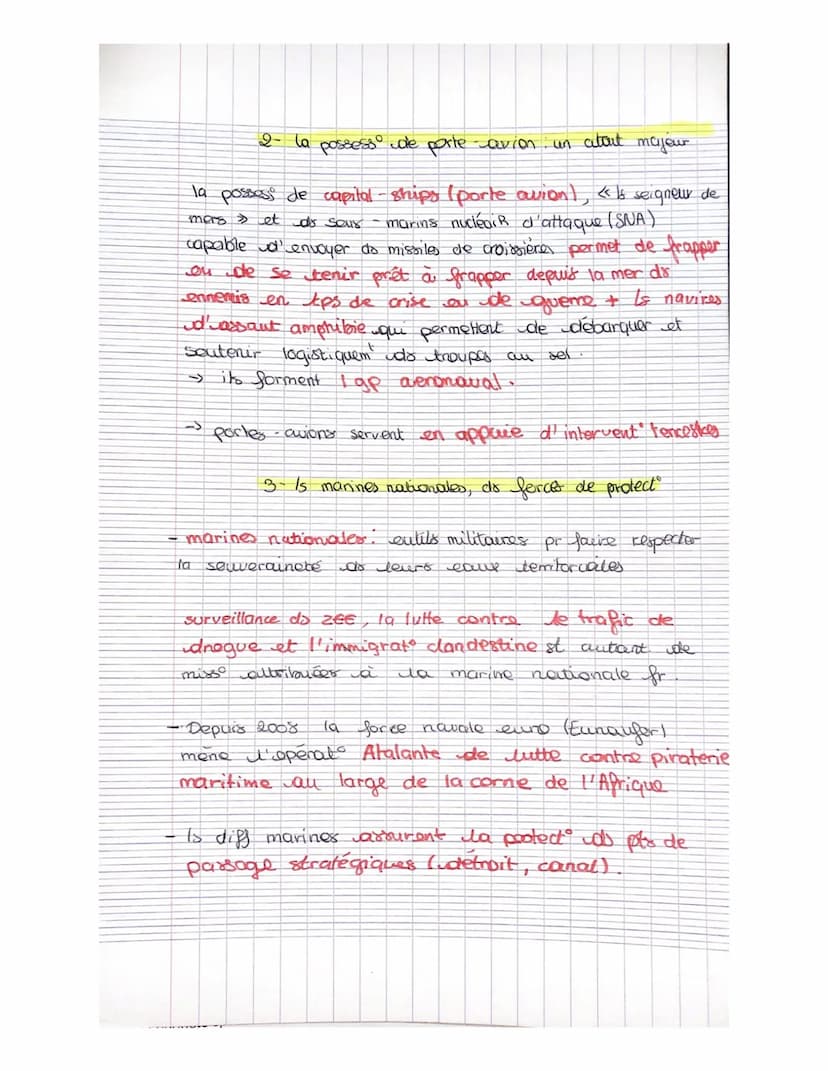 2- la possess° de porte-avion : un atout majeur
la possess° de capital-ships (porte avion), « ls seigneur de
mers » et ds sous-marins nucléaiR d'attaque (SNA)
capable d'envoyer ds missiles de croissière, permet de frapper
ou de se tenir prêt à frapper depuis la mer ds
ennemis en tps de crise ou de guerre + ls navires
d'assaut amphibie qui permettent de débarquer et
soutenir logistiquem^t ds troupes au sol.
→ ils forment 1 gp aeronaval.
→ portes-avions servent en appuie d'intervent° terrestres
3- ls marines nationales, ds forces de protect°
- marines nationales : outils militaires pr faire respecter
la souveraineté ds leurs eaux territoriales
surveillance ds ZEE, la lutte contre le trafic de
drogue et l'immigrat° clandestine st autant de
miss° attribuées à la marine nationale fr.
- Depuis 2008 la force navale euro (Eunaufor)
mène l'opérat° Atalante de lutte contre piraterie
maritime au large de la corne de l'Afrique
- ls diff marines assurent la protect° ds pts de
passage stratégiques (détroit, canal).